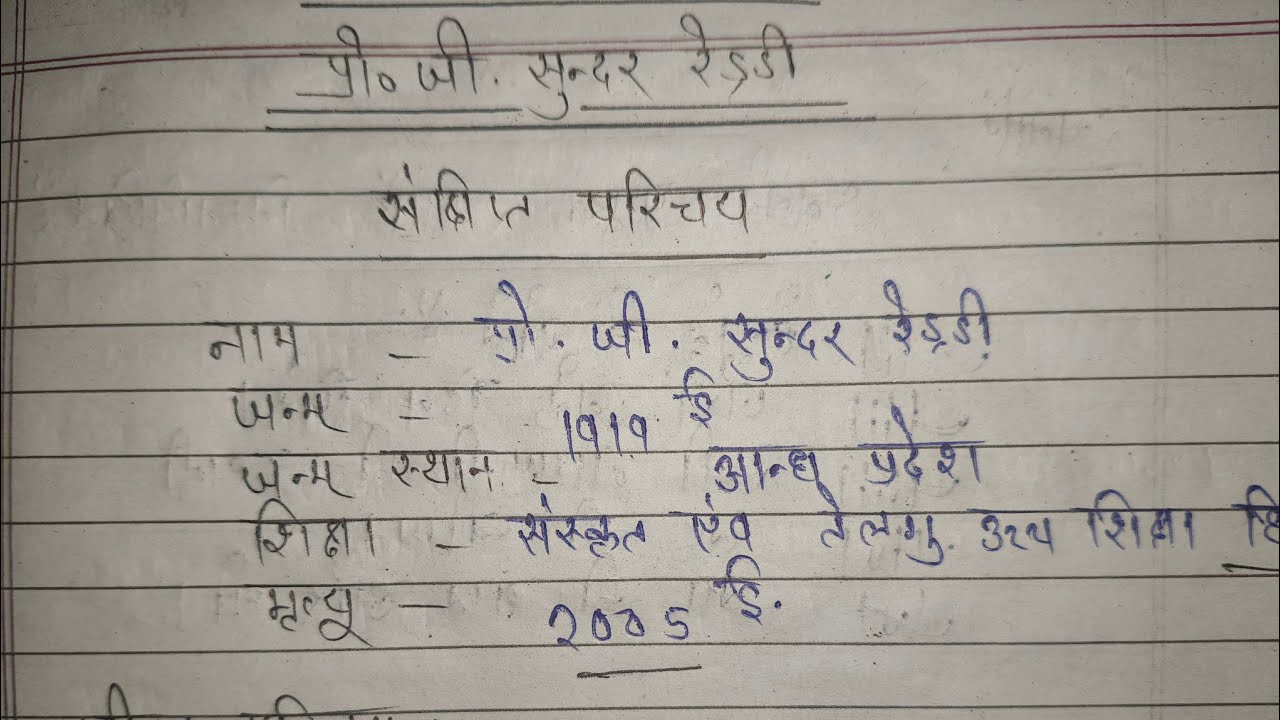 प्रो० जी. सुन्दर रेड्डी
संक्षिप्त परिचय
नाम – प्रो. जी. सुन्दर रेड्डी
जन्म – 1919 ई
जन्म स्थान – आन्ध्र प्रदेश
शिक्षा – संस्कृत एंव तेलगु उच्य शिक्षा हि
मृत्यू – 2005 ई.